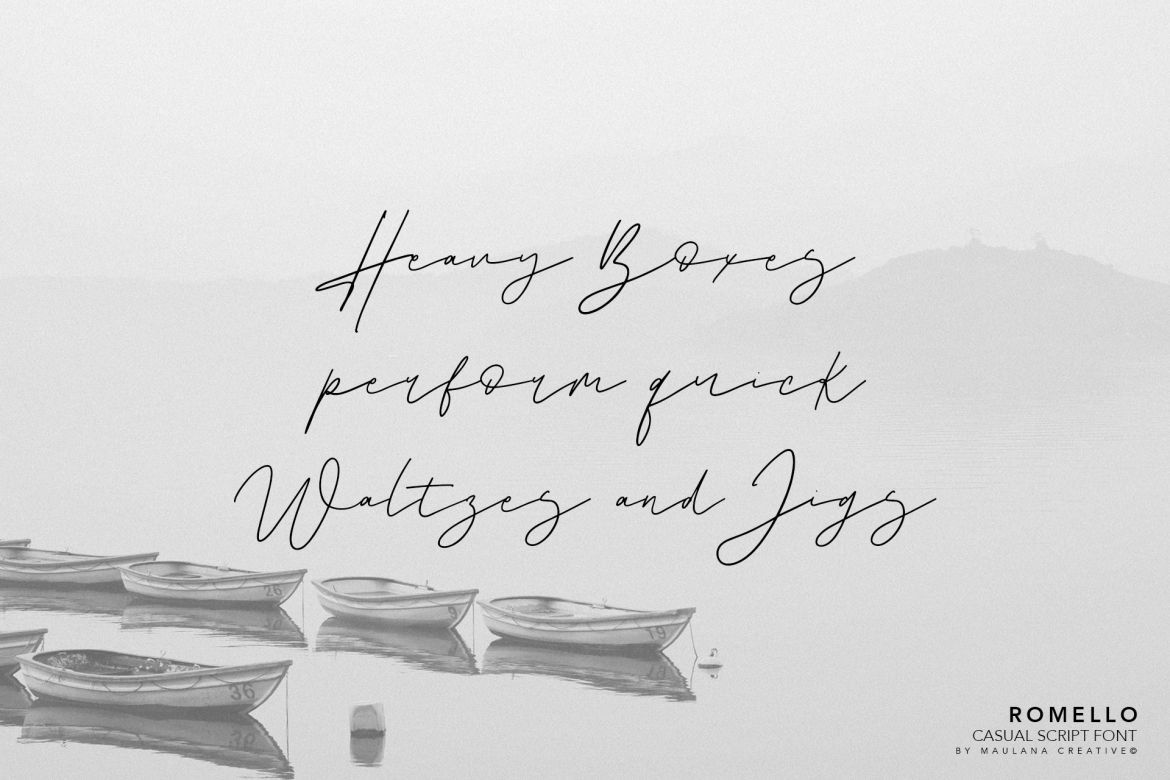 Heavy Boxes
perform quick
Waltzes and Jigs
26
9
19
36
ROMELLO
CASUAL SCRIPT FONT
BY MAULANA CREATIVE©